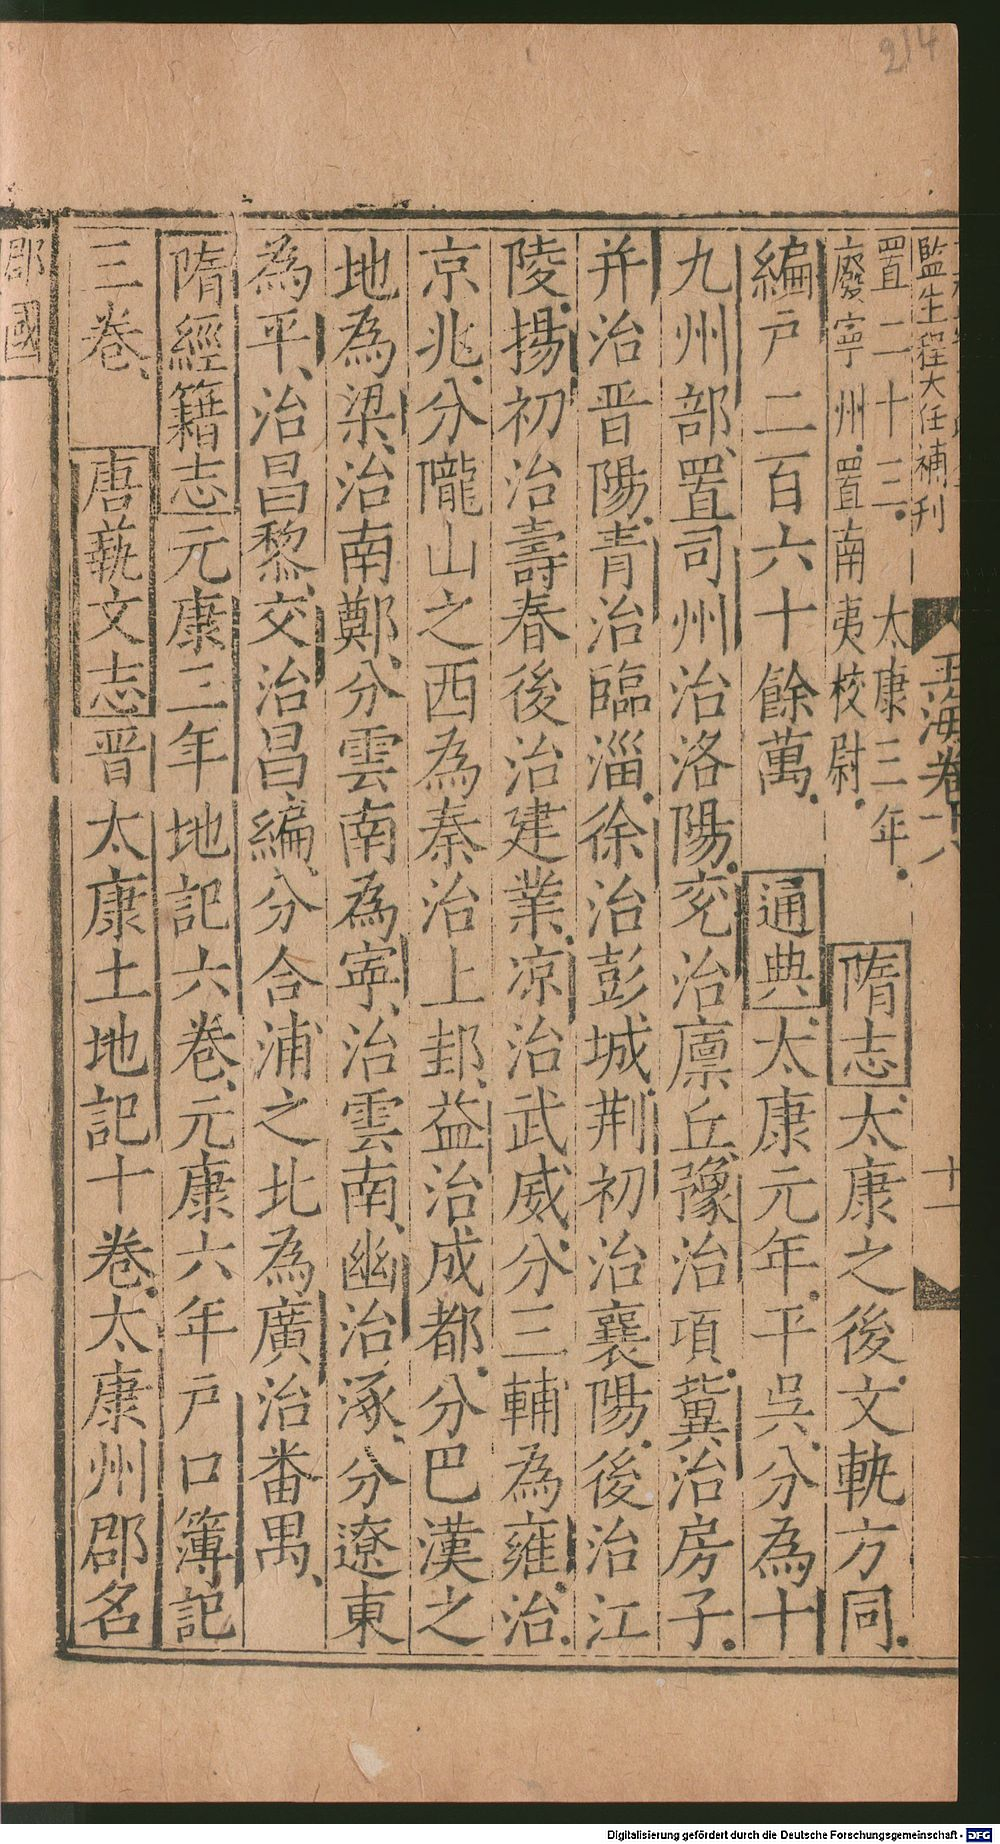 214
監生程大任補刊
玉海卷十八
十一
置二十三。太康三年。
廢寧州。置南夷校尉。
隋志太康之後文軌方同。
編戶二百六十餘萬。通典太康元年。平吳分為十
九州部、置司州治洛陽。兗治廩丘、豫治項。冀治房子。
并治晉陽。青治臨淄。徐治彭城。荆初治襄陽。後治江
陵。揚初治壽春後治建業。凉治武威。分三輔為雍。治
京兆。分隴山之西為秦治上邽。益治成都。分巴漢之
地為梁、治南鄭。分雲南為寧、治雲南、幽治涿、分遼東
為平、治昌黎、交治昌編、分合浦之北為廣治番禺、
隋經籍志元康三年地記六卷、元康六年戶口簿記
三卷、唐蓺文志晋太康土地記十卷。太康州郡名
郡國
Digitalisierung gefördert durch die Deutsche Forschungsgemeinschaft - DFG